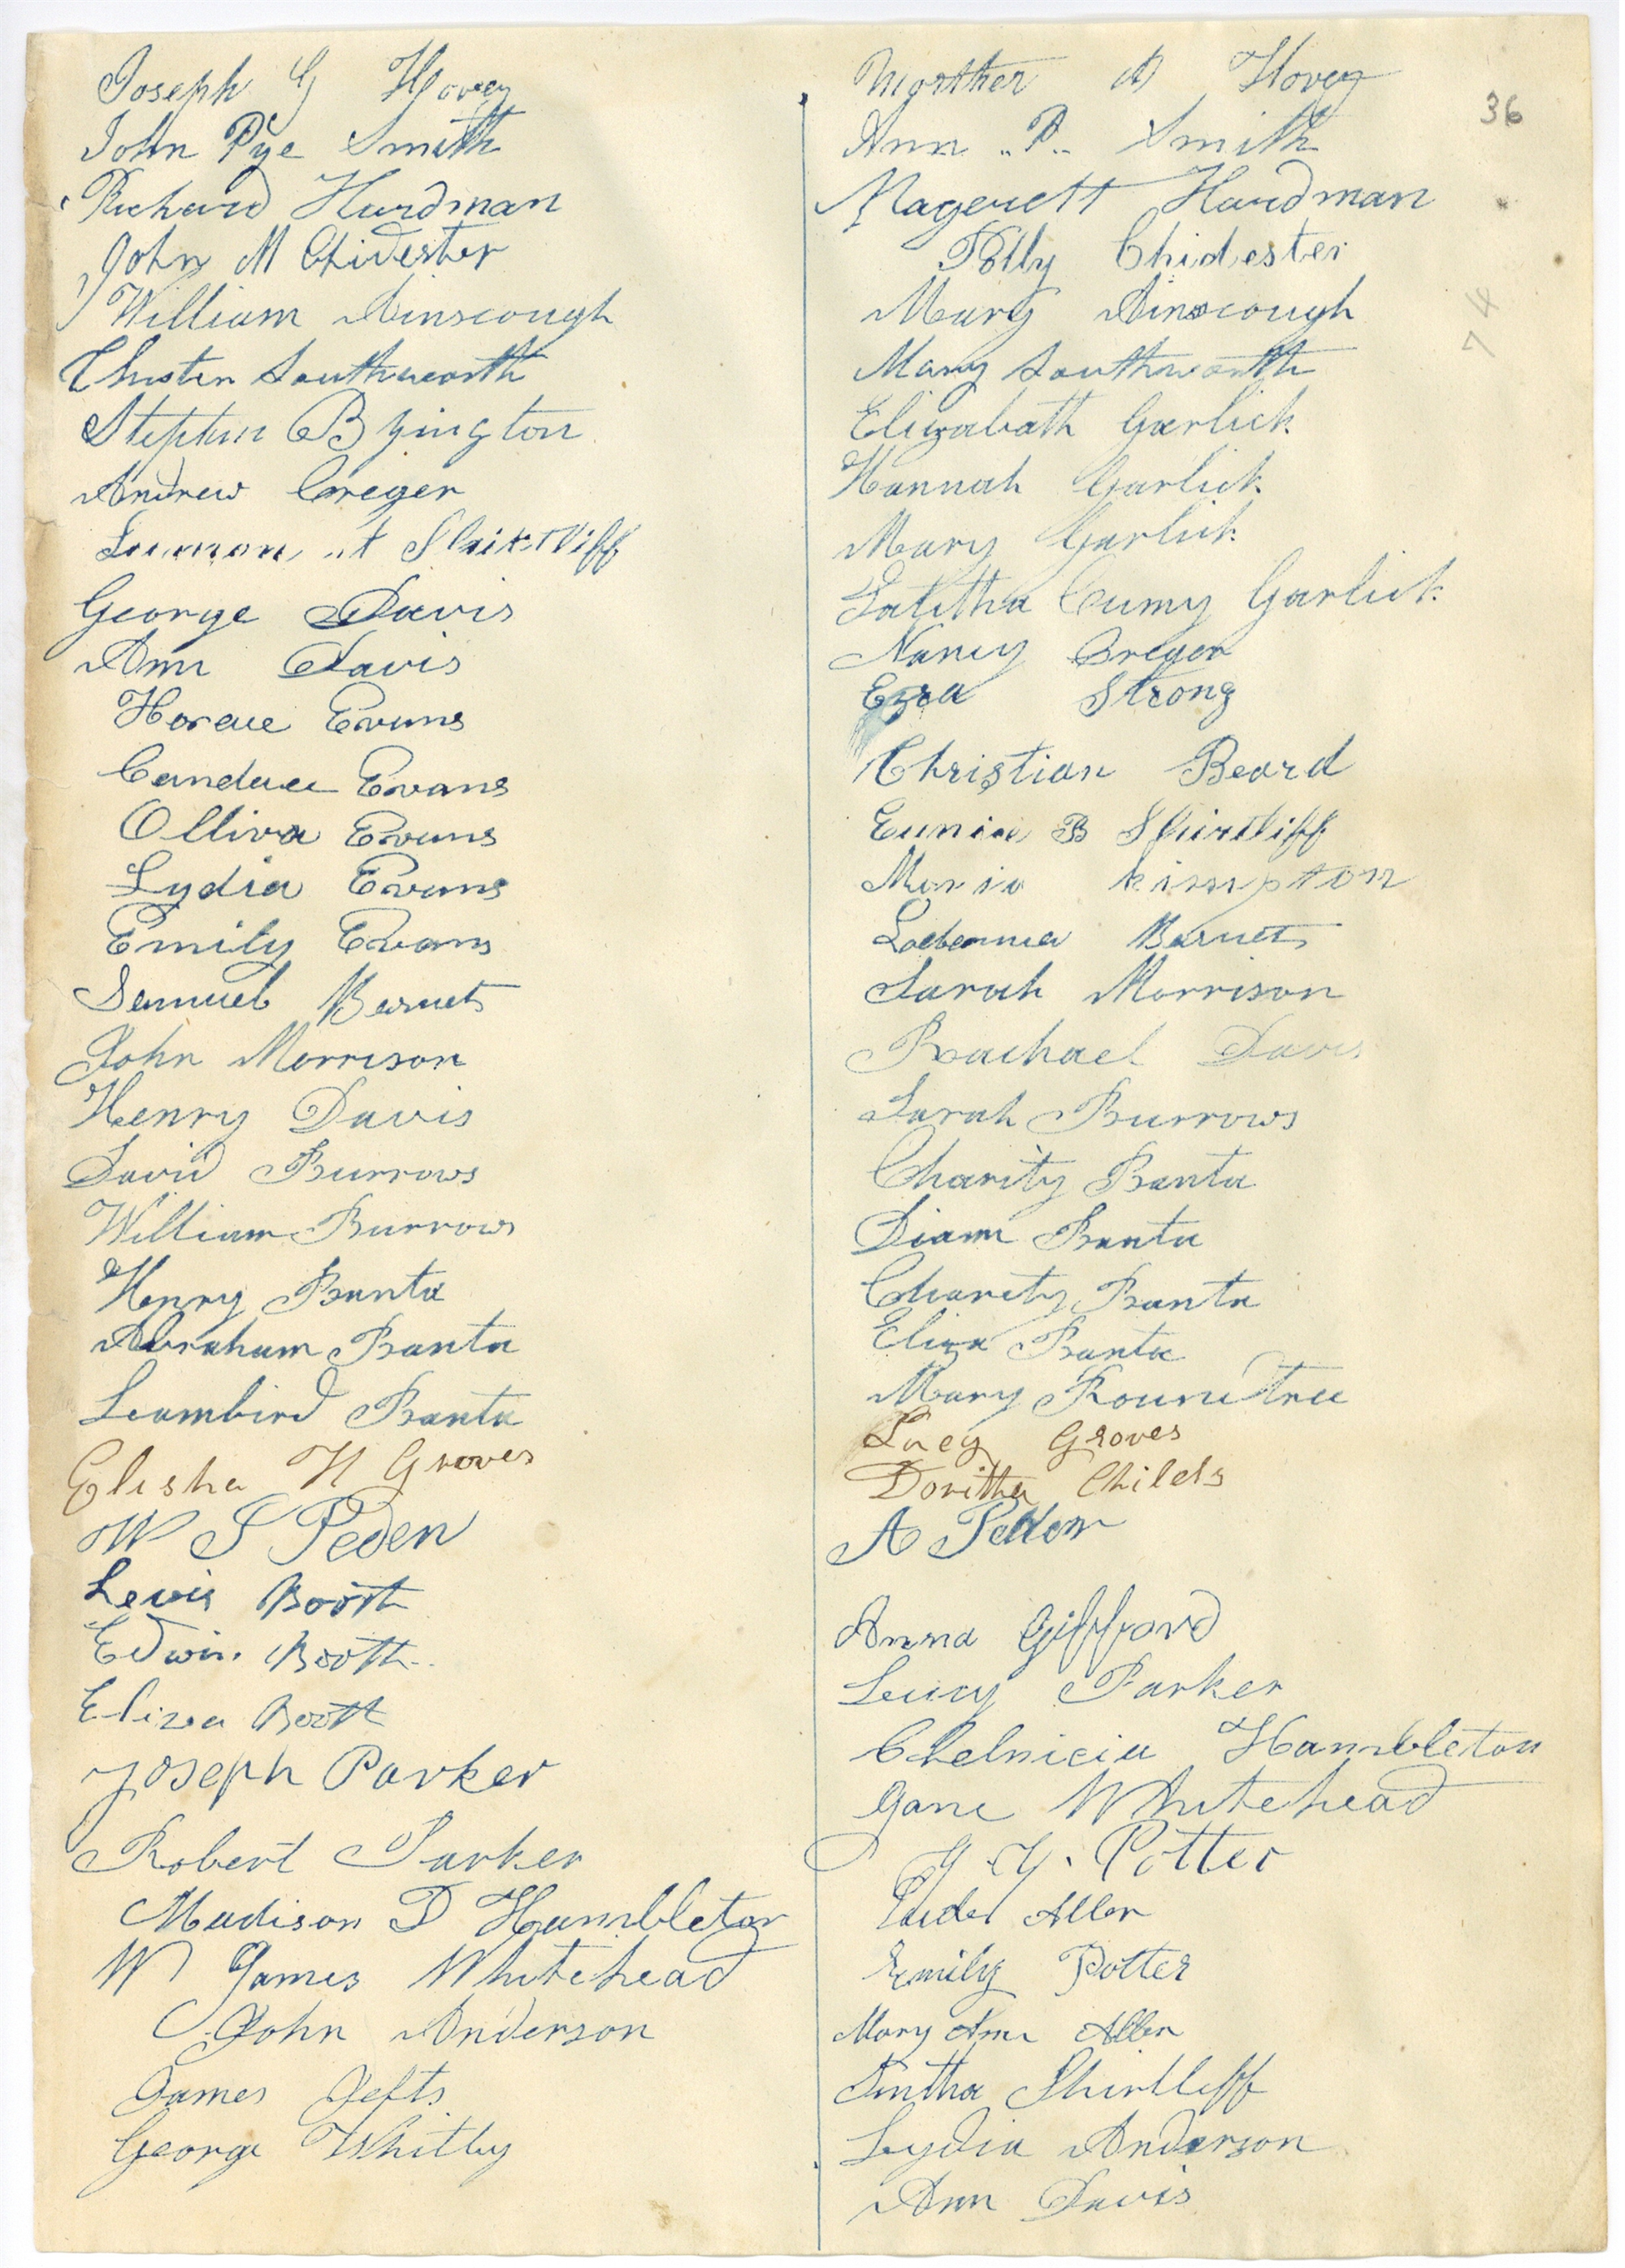 Joseph G Hovey
John Pye Smith
Richard Hardman
John M Chidester
William Ainscough
Chester Southworth
Stephen Byington
Andrew Creger
Luman
George Davis
Ann Davis
Horace Evans
Candace Evans
Olliva Evans
Lydia Evans
Emily Evans
Samuel Barnet
John Morrison
Henry Davis
David Burrows
William Burrows
Henry Banta
Abraham Banta
Banta
Elisha H Groves
W S Peden
Lewis Booth
Edwin Booth
Eliza Booth
Joseph Parker
Robert Parker
Madison D Hambleton
W James Whitehead
John Anderson
James Jefts
George Whitby
36
74
Marther A Hovey
Ann .. P .. Smith
Magerett Hardman
Polly Chidester
Mary Ainscough
Mary Southworth
Elizabath Garlick
Hannah Garlick
Mary Garlick
Talitha Cumy Garlick
Nancy Creger
Ezra Strong
Christian Beard
Eunice B Shirtliff
Maria kimpton
Barnet
Sarah Morrison
Rachael Davis
Sarah Burrows
Charity Banta
Diann Banta
Charity Banta
Eliza Banta
Mary Roundtree
Lucy Groves
Doritha Childs
A Peden
Anna Gifford
Lucy Parker
Chelnicia Hambleton
Jane Whitehead
G. G. Potter
Allen
Emily Potter
Mary Ann Allen
Shirtliff
Lydia Anderson
Ann Davis